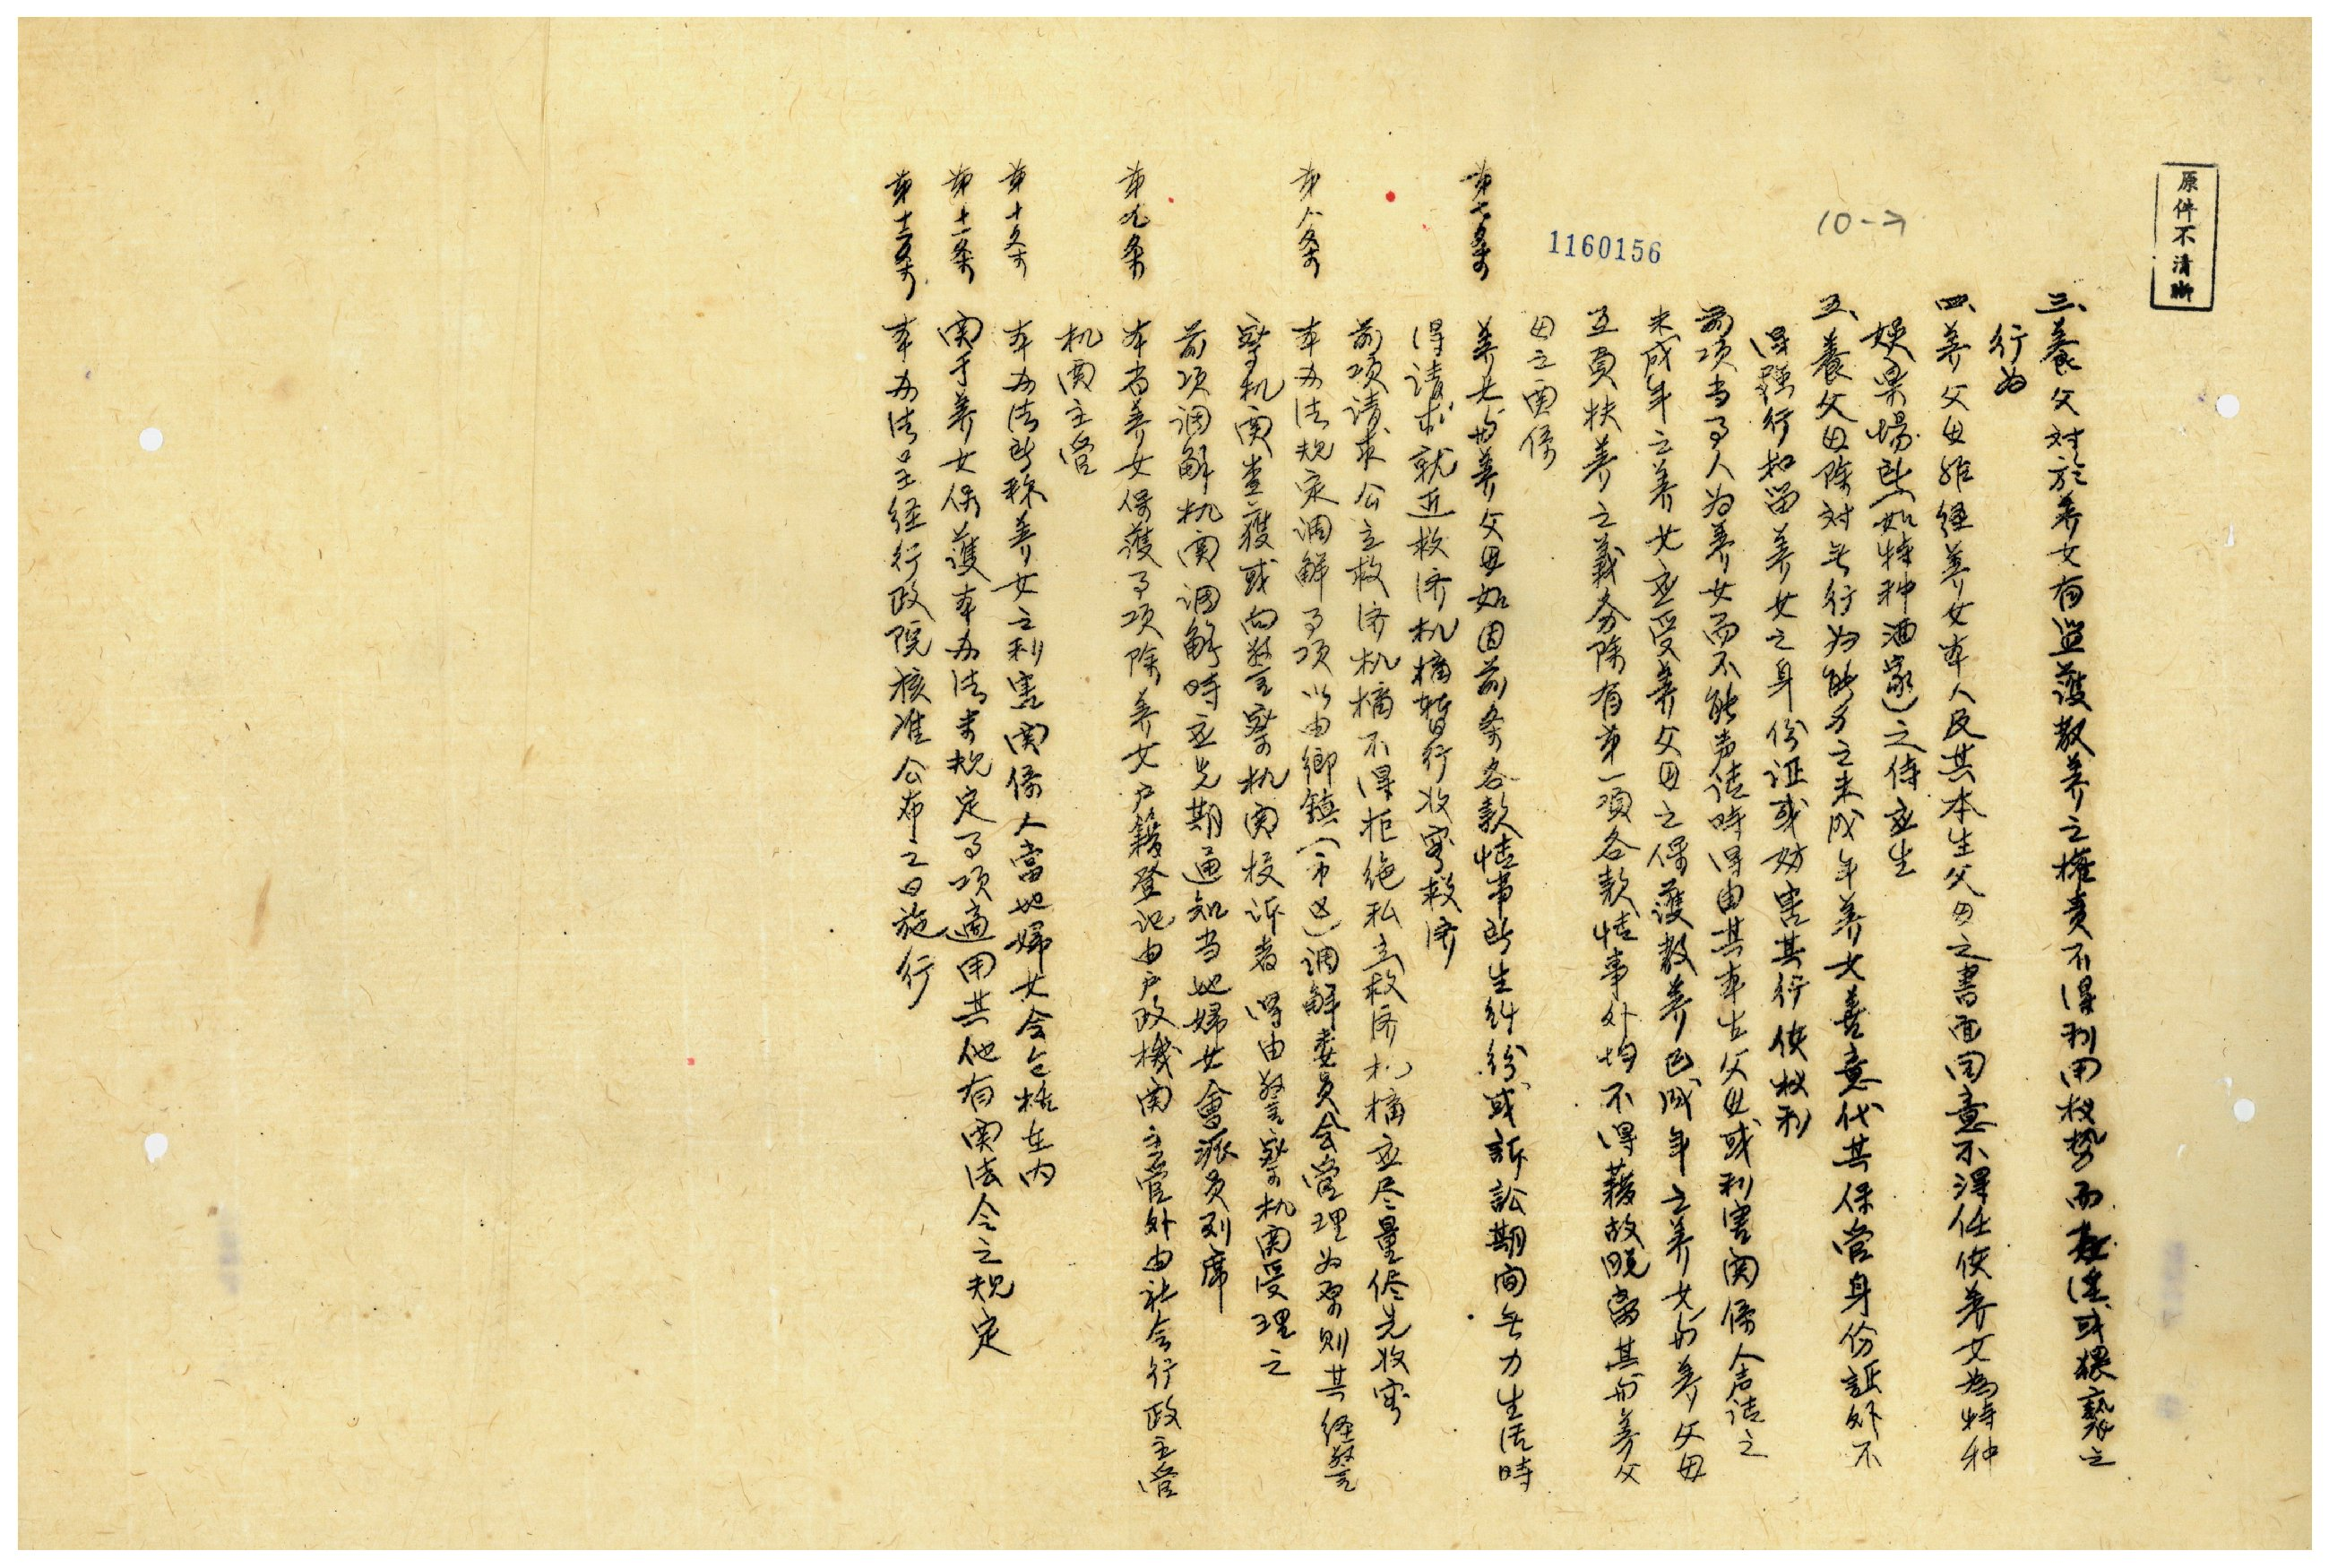 原件不清晰
三、養父对於养女有监護教养之權责不得利用权势而姦淫或猥褻之
行為
四、养父母非经养女本人及其本生父母之書面同意不得任使养女為特种
娱楽場所(如特种酒家)之侍应生
五、養父母除对无行为能力之未成年养女善意代其保管身份証外不
得强行扣留养女之身份证或妨害其行使权利
前项当事人为养女而不能声请時得由其本生父母或利害関係人声请之
未成年之养女应受养父母之保護教养已成年之养女与养父母
互負扶养之義务除有第一项各款情事外均不得藉故脱离其与养父
母之関係
10->
1160156
第七条 养女与养父母如因前条各款情事所生纠纷或訴訟期间无力生活時
得请求就近救济机構暂行收容救济
前项请求公立救济机構不得拒绝私立救济机構应尽量侭先收容
第八条 本办法规定调解事项以由鄉镇(市区)调解委员会受理为原则其经警
察机関查獲或向警察机関投诉者得由警察机関受理之
前项调解机関调解時应先期通知当地婦女會派员列席
第九条 本省养女保護事项除养女户籍登记由户政機関主管外由社会行政主管
机関主管
第十条 本办法所称养女之利害関係人當地婦女会包括在内
第十一条 関于养女保護本办法未规定事项適用其他有関法令之规定
第十二条 本办法呈经行政院核准公布之日施行